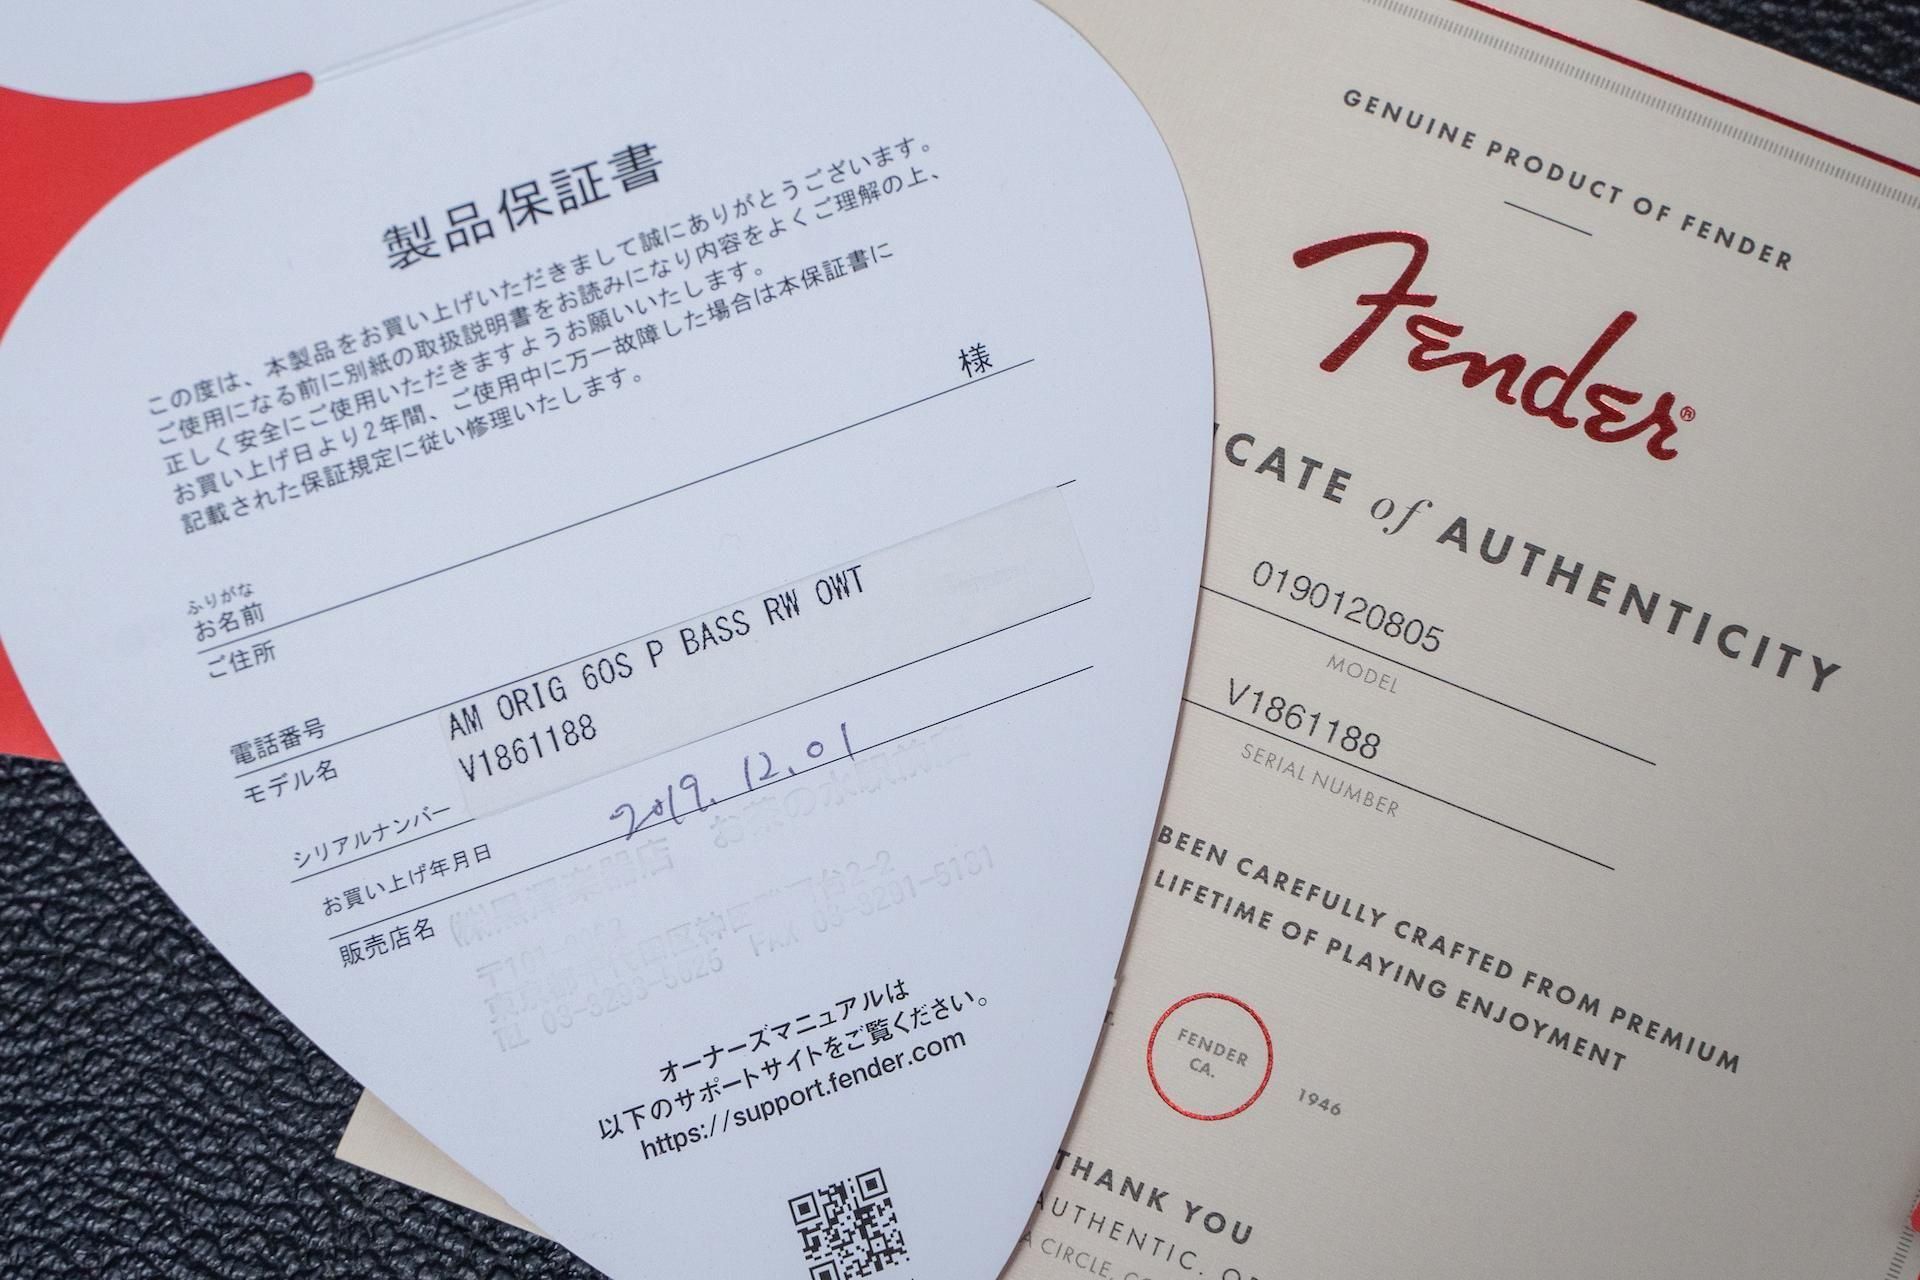 製品保証書
この度は、本製品をお買い上げいただきまして誠にありがとうございます。
ご使用になる前に別紙の取扱説明書をお読みになり内容をよくご理解の上、
正しく安全にご使用いただきますようお願いいたします。
お買い上げ日より2年間、ご使用中に万一故障した場合は本保証書に
記載された保証規定に従い修理いたします。
様
ふりがな
お名前
ご住所
電話番号
モデル名
AM ORIG 60S P BASS RW OWT
V1861188
シリアルナンバー
お買い上げ年月日
2019.12.01
販売店名
㈱黒澤楽器店 お茶の水駅前店
〒101-0062
東京都千代田区神田駿河台2-2
TEL 03-3293-5625 FAX 03-3291-5131
オーナーズマニュアルは
以下のサポートサイトをご覧ください。
https://support.fender.com
GENUINE PRODUCT OF FENDER
Fender®
ICATE of AUTHENTICITY
0190120805
MODEL
V1861188
SERIAL NUMBER
BEEN CAREFULLY CRAFTED FROM PREMIUM
LIFETIME OF PLAYING ENJOYMENT
FENDER
CA.
1946
THANK YOU
AUTHENTIC.
A CIRCLE,